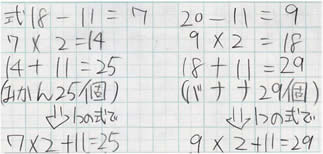 式18-11=7
7×2=14
14+11=25
(みかん25個)
⇓1つの式で
7×2+11=25
20-11=9
9×2=18
18+11=29
(バナナ29個)
⇓1つの式で
9×2+11=29